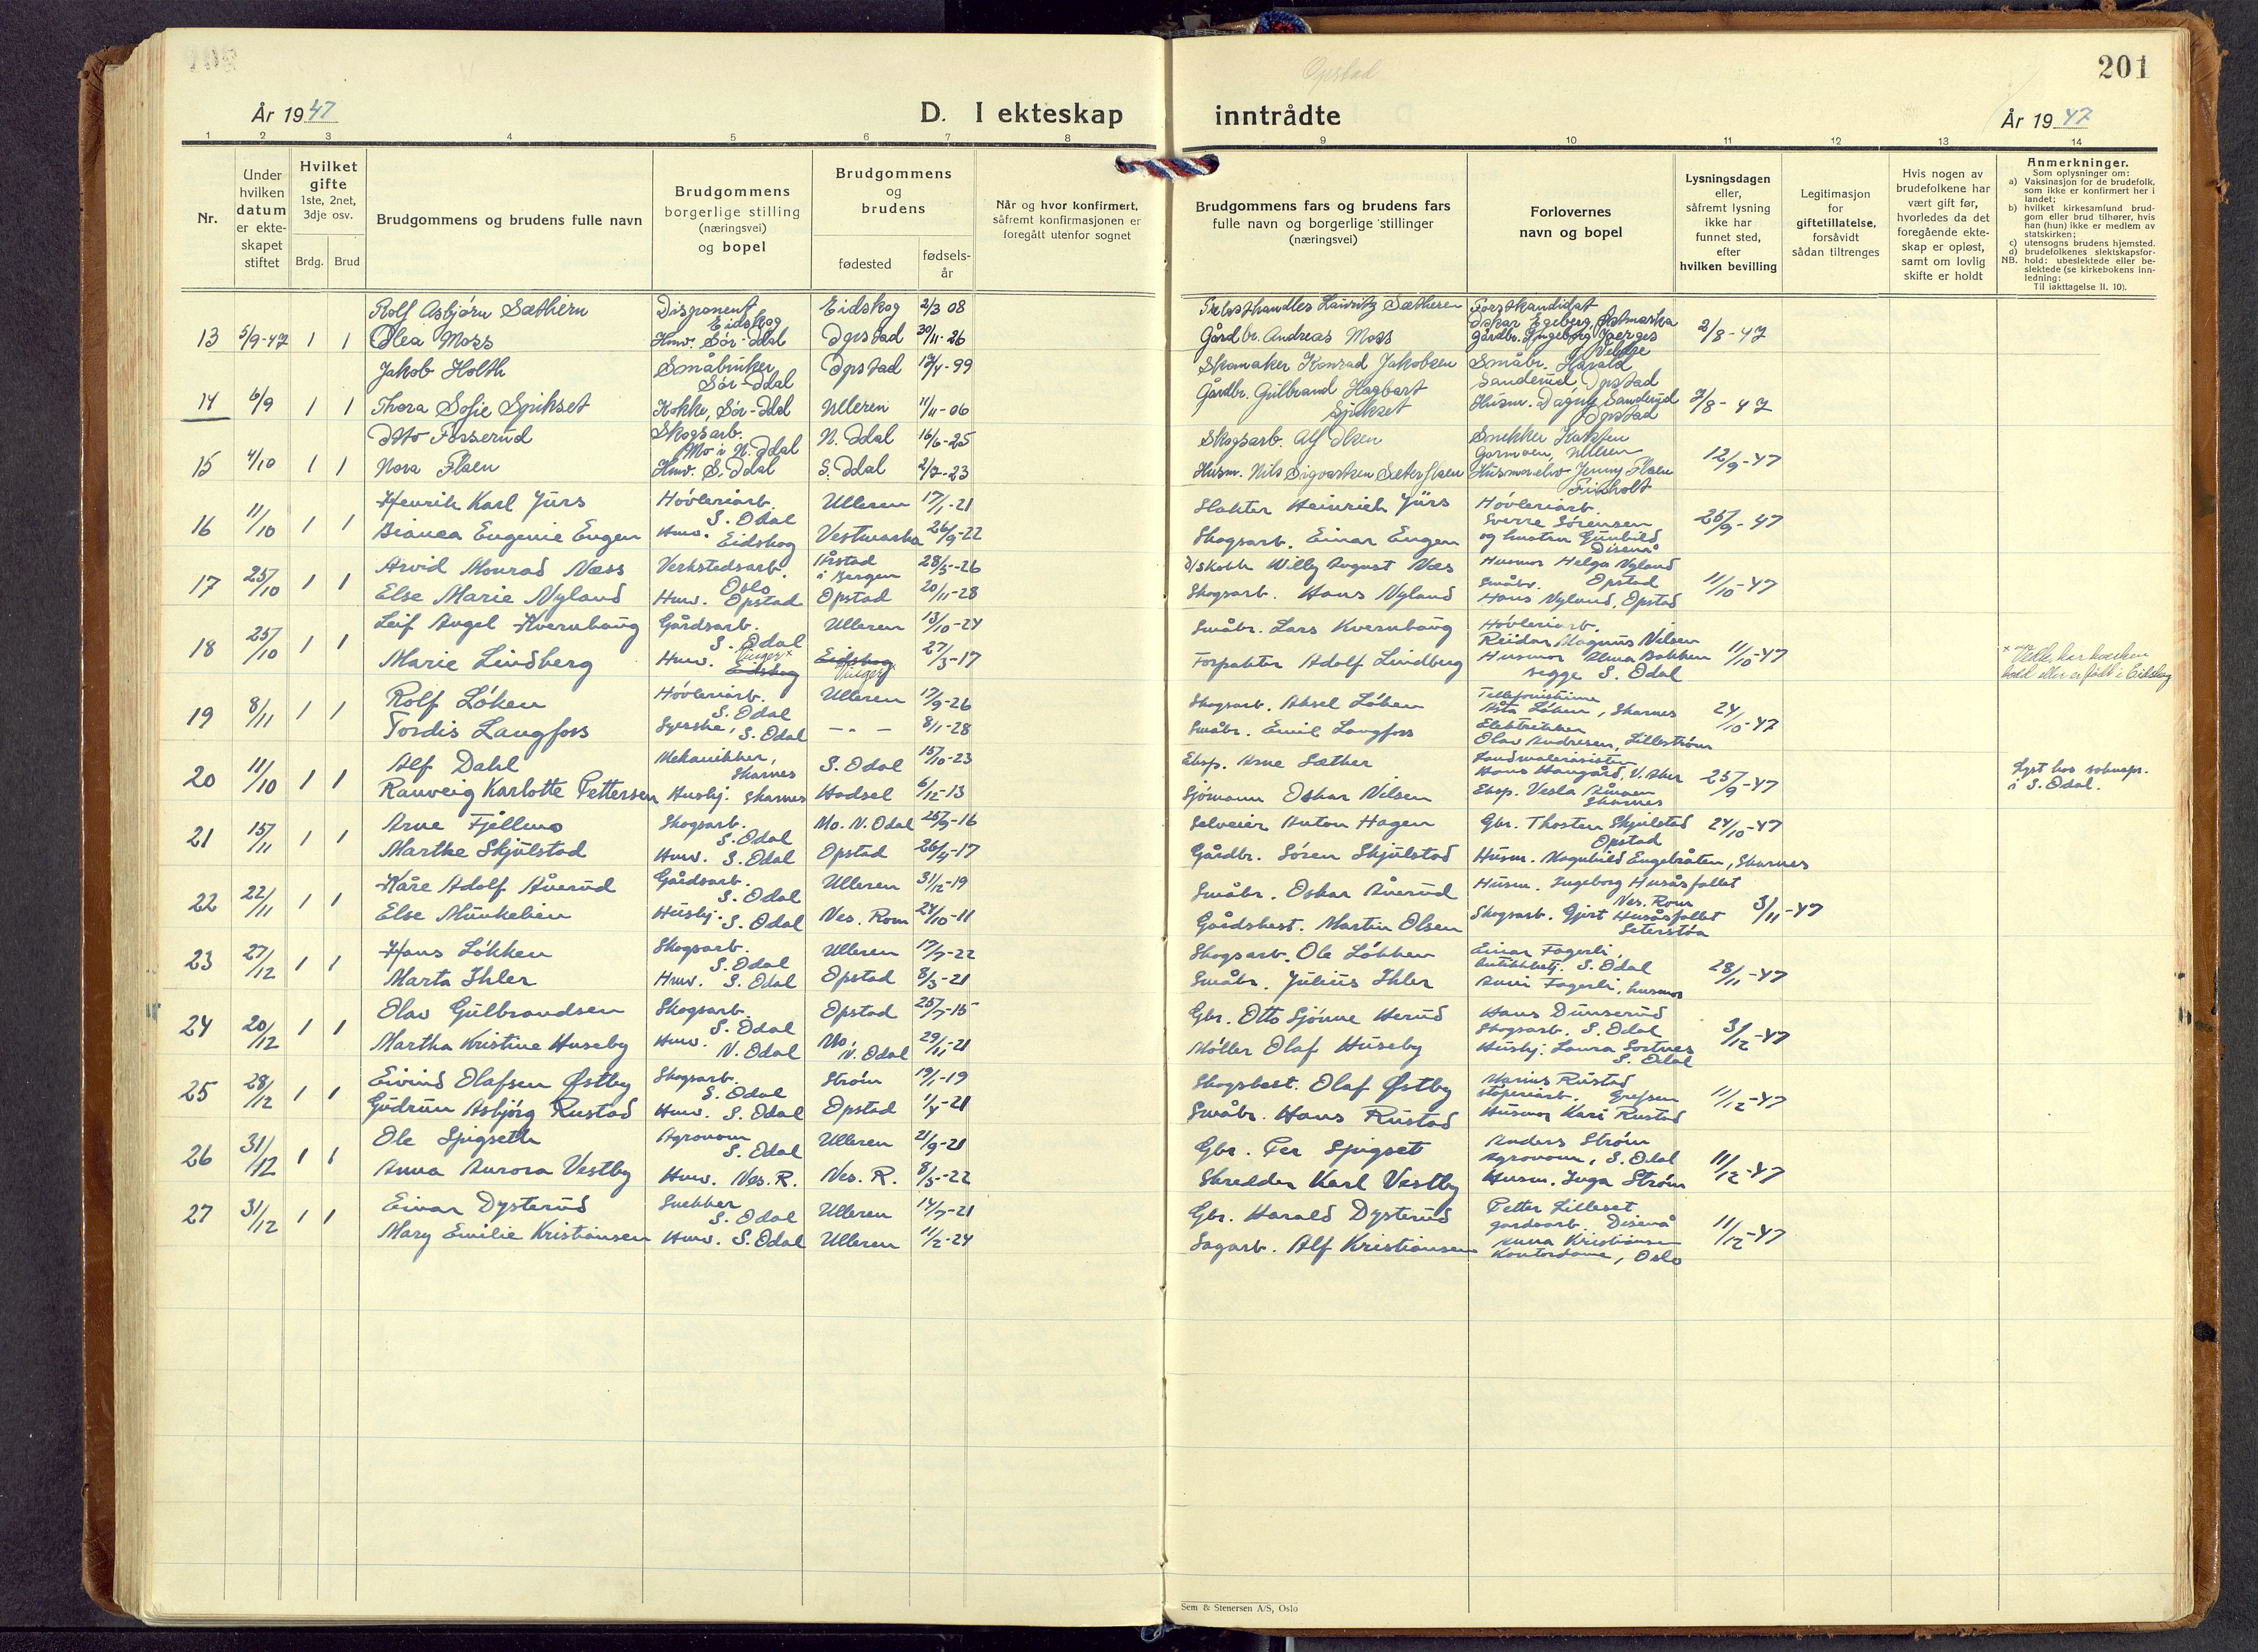 Opstad
201
År 1947
D. I ekteskap inntrådte
År 1947
1 2 3 4 5 6 7 8 9 10 11 12 13 14
Nr.
Under hvilken datum er ekteskapet stiftet
Hvilket gifte 1ste, 2net, 3dje osv.
Brdg. Brud
Brudgommens og brudens fulle navn
Brudgommens borgerlige stilling (næringsvei) og bopel
Brudgommens og brudens
fødested
fødselsår
Når og hvor konfirmert, såfremt konfirmasjonen er foregått utenfor sognet
Brudgommens fars og brudens fars fulle navn og borgerlige stillinger (næringsvei)
Forlovernes navn og bopel
Lysningsdagen eller, såfremt lysning ikke har funnet sted, efter hvilken bevilling
Legitimasjon for giftetillatelse, forsåvidt sådan tiltrenges
Hvis nogen av brudefolkene har vært gift før, hvorledes da det foregående ekteskap er opløst, samt om lovlig skifte er holdt
Anmerkninger.
Som oplysninger om:
a) Vaksinasjon for de brudefolk, som ikke er konfirmert her i landet;
b) hvilket kirkesamfund brudgom eller brud tilhører, hvis han (hun) ikke er medlem av statskirken;
c) utensogns brudens hjemsted.
d) brudefolkenes slektskapsforhold: ubeslektede eller beslektede (se kirkebokens innledning:
NB.
Til iakttagelse II. 10).
13 5/9-47 1 1 Rolf Asbjørn Sæthern Disponent Eidskog Eidskog 2/3 08 Lauritz Sætheren Forstkandidat Oskar Egeberg, Østmarka 2/8-47
Olea Moss Hmv. Sør-Odal Opstad 30/11-26 Gårdbr. Andreas Moss Gårdbr. Ingeborg
14 6/9 1 1 Jakob Holth Småbruker Sør-Odal Opstad 12/4-99 Skomaker Konrad Jakobsen Småbr. Harald Sanderud, Opstad 7/8-47
Thora Sofie Spikset Kokke, Sør-Odal Ulleren 11/11-06 Gårdbr. Gulbrand Hagbart Spikset Husm. Dagny Sanderud Opstad
15 4/10 1 1 Otto Fosserud Skogsarb. Mo i N. Odal N. Odal 16/6-25 Skogsarb. Alf Olsen Snekker Karsten Gormoen, Ulleren 12/9-47
Nora Flaen Hmv. S. Odal S. Odal 2/7-23 Husm. Nils Sigvartsen Sæter Flaen Jenny Flaen Finholt
16 11/10 1 1 Henrik Karl Jürs Høvleriarb. S. Odal Ulleren 17/1-21 Slakter Heinrich Jürs Høvleriarb. Sverre Sørensen 25/9-47
Bianca Eugenie Eugen Hmv. Eidskog Vestmarka 26/9-22 Skogsarb. Einar Eugen og hustru Gunhild Disenå
17 25/10 1 1 Arvid Monrad Næss Verkstedsarb. Oslo Årstad i Bergen 28/5-26 Willy August Næs Husmor Helga Nyland Opstad 11/10-47
Else Marie Nyland Hmv. Opstad Opstad 20/11-28 Skogsarb. Hans Nyland Småbr. Hans Nyland, Opstad
18 25/10 1 1 Leif Angel Kvernhaug Gårdsarb. S. Odal Ulleren 13/10-24 Småbr. Lars Kvernhaug Høvleriarb. Reidar Magnus Nilsen 11/10-47
Marie Lindberg Hmv. Eidskog Vinger x Eidskog Vinger x 27/3-17 Forpakter Adolf Lindberg Husmor Alma Bakken begge S. Odal
19 8/11 1 1 Rolf Löken Høvleriarb. S. Odal Ulleren 17/9-26 Skogsarb. Aksel Löken Telefonistinne Åsta Löken, Skarnes 24/10-47
Tordis Langfoss Syerske, S. Odal – " – 8/1-28 Småbr. Emil Langfoss Elektriker Olav Andresen, Lillestrøm
20 11/10 1 1 Alf Dahl Mekaniker, Skarnes S. Odal 15/10-23 Eksp. Arne Sæther Hans Haugård, V. Aker 25/9-47 Lyst hos soknepr. i S. Odal.
Ranveig Karlotte Pettersen Hushj. Skarnes Hadsel 6/12-13 Sjømann Oskar Nilsen Eksp. Vesla Åmoen Skarnes
21 15/11 1 1 Arne Fjellmo Skogsarb. S. Odal Mo. N. Odal 25/9-16 Selveier Anton Hagen Gbr. Thosten Skjulstad Opstad 24/10-47
Marthe Skjulstad Hmv. S. Odal Opstad 26/4-17 Gårdbr. Søren Skjulstad Husm. Magnhild Engebråten, Skarnes
22 22/11 1 1 Kåre Adolf Åverud Gårdsarb. S. Odal Ulleren 31/12-19 Småbr. Oskar Åverud Husm. Ingeborg Husåsfallet Nes. Rom 3/11-47
Else Munkelien Hushj. S. Odal Nes. Rom 24/10-11 Gårdsbest. Martin Olsen Skogsarb. Gjert Husåsfallet Seterstøa
23 27/12 1 1 Hans Løkken Skogsarb. S. Odal Ulleren 17/7-22 Skogsarb. Ole Løkken Einar Fagerli, S. Odal 28/11-47
Marta Ihler Hmv. S. Odal Opstad 8/3-21 Småbr. Julius Ihler Fagerli, husmor
24 20/12 1 1 Olav Gulbrandsen Skogsarb. S. Odal Opstad 25/7-15 Gbr. Otto Sjønne Herud Hans Dunserud Skogsarb. S. Odal 3/12-47
Martha Kristine Huseby Hmv. N. Odal Mo, N. Odal 29/11-21 Møller Olaf Huseby Hushj. Laura Sortnes S. Odal
25 28/12 1 1 Eivind Olafsen Østby Skogsarb. S. Odal Strøm 19/1-19 Skogsbest. Olaf Østby Marius Rustad støperiarb. Grefsen 11/12-47
Gudrun Asbjörg Rustad Hmv. S. Odal Opstad 1/4-21 Småbr. Hans Rustad Husmor Kari Rustad
26 31/12 1 1 Ole Spigseth Agronom S. Odal Ulleren 21/9-21 Gbr. Per Spigset Anders Strøm agronom, S. Odal 11/12-47
Anna Aurora Vestby Hmv. Nes. R. Nes. R. 8/5-22 Skredder Karl Vestby Husm. Inga Strøm
27 31/12 1 1 Einar Dysterud Snekker S. Odal Ulleren 14/7-21 Gbr. Harald Dysterud Petter Lilleset gardsarb. Disenå 11/12-47
Mary Emilie Kristiansen Hmv. S. Odal Ulleren 11/2-24 Sagarb. Alf Kristiansen Anna Kristiansen Kontordame, Oslo
Sem & Stenersen A/S, Oslo